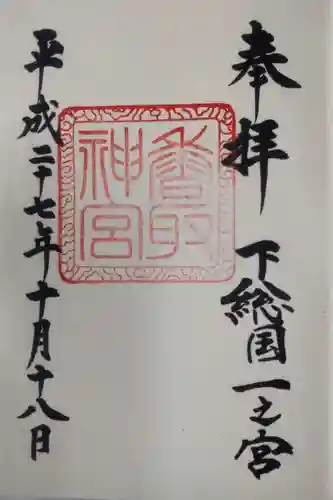 奉拝
下総国一之宮
香取神宮
平成二十七年十月十八日